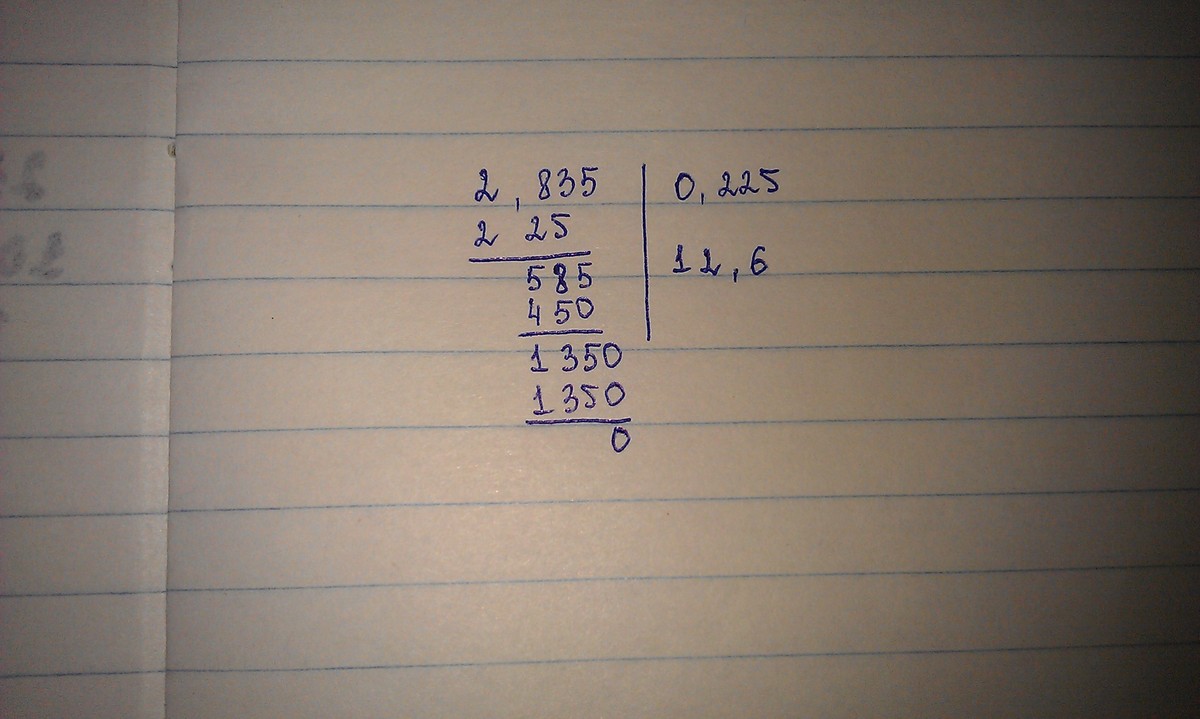 2,835 0,225
2 25
12,6
585
450
1350
1350
0